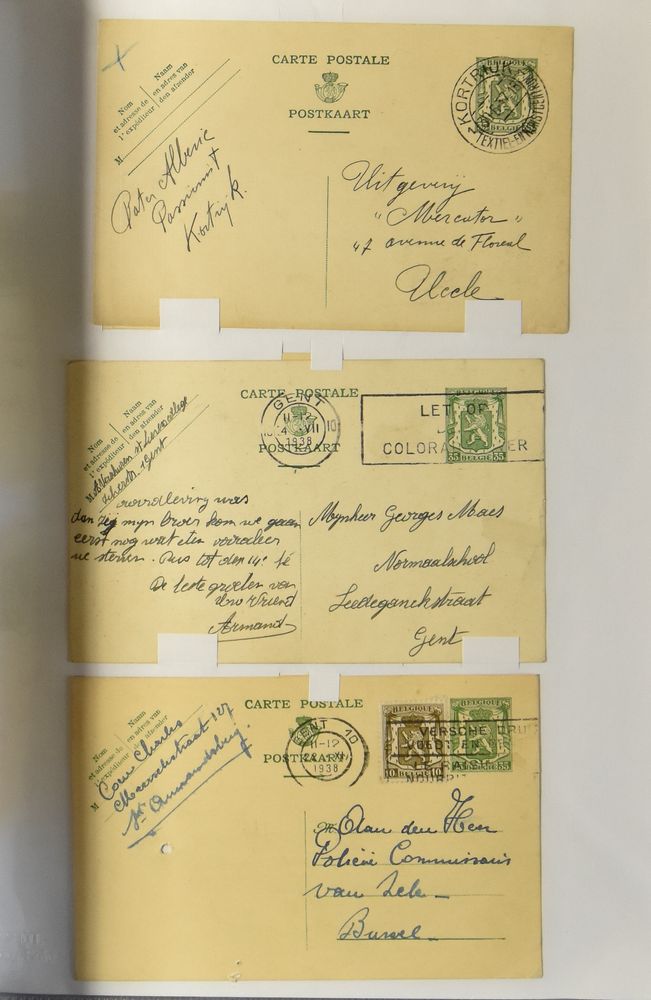 CARTE POSTALE
POSTKAART
Nom
et adresse de
l'expéditeur
Naam
en adres van
den afzender
M
BELGIQUE
BELGIE
KORTRIJK
TEXTIEL-EN
Pater Alberic
Passionist
Kortrijk.
Uitgeverij
"Mercator"
47 avenue de Floreal
Uccle
CARTE POSTALE
POSTKAART
Nom
et adresse de
l'expéditeur
Naam
en adres van
den afzender
M
GENT
11-12
VII
1938
10
LET OP
COLORA ER
35 35
Gent
was
Dan zeg mijn broer kom we gaan
eerst nog wat eten vooraleer
we sterven. Dus tot den 14e
De beste groeten van
Uw Vriend
Armand
Mijnheer Georges Maes
Normaalschool
Ledeganckstraat
Gent
CARTE POSTALE
POSTKAART
Nom
et adresse de
l'expéditeur
Naam
en adres van
den afzender
M
Charles
127
St Amandsberg.
GENT 10
11-12
1938
BELGIQUE
10 10
35
VERSCHE
VOEDT EN
Aan den Heer
Commissaris
van
Brussel